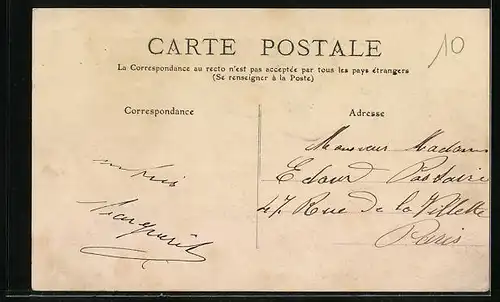 CARTE POSTALE
10
La Correspondance au recto n'est pas acceptée par tous les pays étrangers
(Se renseigner à la Poste)
Correspondance
Adresse
Monsieur Madame
47 Rue de la Villette
Paris